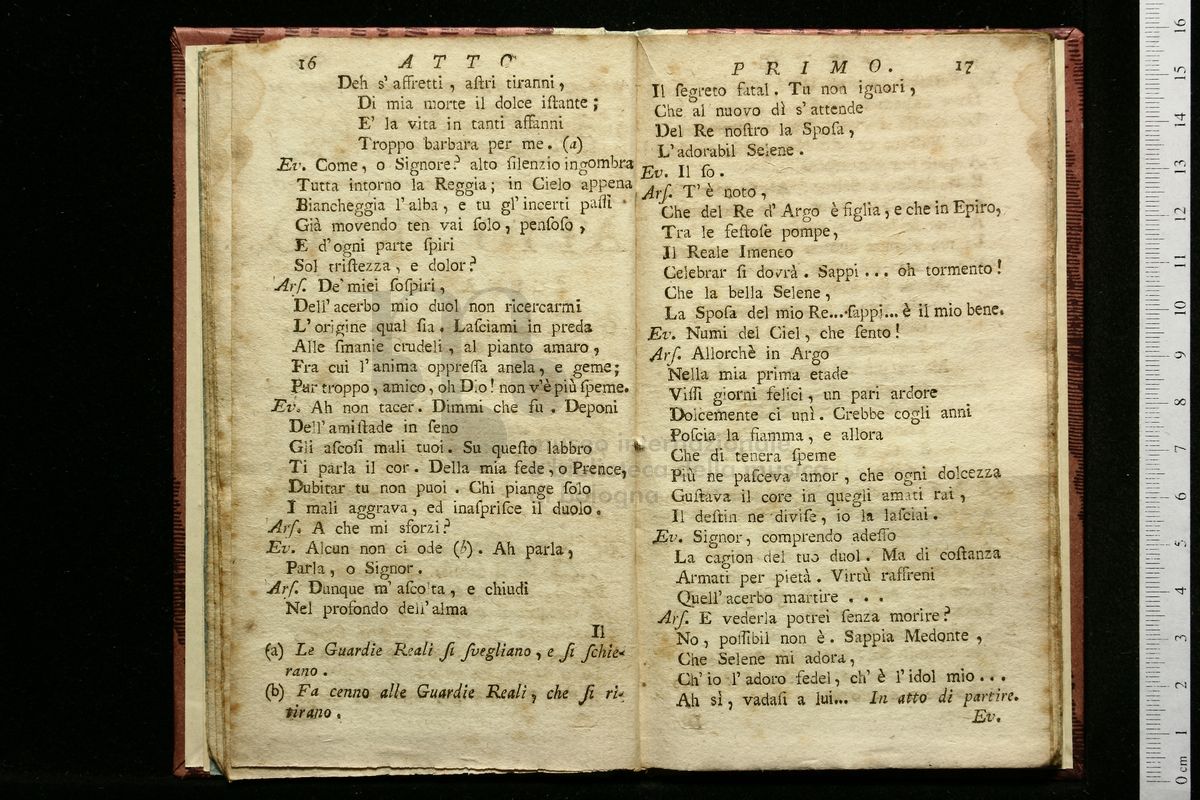 16 ATTO
Deh s' affretti , aſtri tiranni ,
Di mia morte il dolce iſtante ;
E' la vita in tanti affanni
Troppo barbara per me . (a)
Ev. Come , o Signore ? alto ſilenzio ingombra
Tutta intorno la Reggia ; in Cielo appena
Biancheggia l' alba , e tu gl' incerti paſſi
Già movendo ten vai ſolo , penſoſo ,
E d' ogni parte ſpiri
Sol triſtezza , e dolor ?
Arſ. De' miei ſoſpiri ,
Dell' acerbo mio duol non ricercarmi
L' origine qual ſia . Laſciami in preda
Alle ſmanie crudeli , al pianto amaro ,
Fra cui l' anima oppreſſa anela , e geme ;
Pur troppo , amico , oh Dio ! non v' è più ſpeme .
Ev. Ah non tacer . Dimmi che fu . Deponi
Dell' amiſtade in ſeno
Gli aſcoſi mali tuoi . Su queſto labbro
Ti parla il cor . Della mia fede , o Prence ,
Dubitar tu non puoi . Chi piange ſolo
I mali aggrava , ed inaſpriſce il duolo .
Arſ. A che mi sforzi ?
Ev. Alcun non ci ode (b) . Ah parla ,
Parla , o Signor .
Arſ. Dunque m' aſcolta , e chiudi
Nel profondo dell' alma
Il
(a) Le Guardie Reali ſi ſvegliano , e ſi ſchie-
rano .
(b) Fa cenno alle Guardie Reali , che ſi ri-
tirano .
PRIMO. 17
Il ſegreto fatal . Tu non ignori ,
Che al nuovo dì s' attende
Del Re noſtro la Spoſa ,
L' adorabil Selene .
Ev. Il ſo .
Arſ. T' è noto ,
Che del Re d' Argo è figlia , e che in Epiro ,
Tra le feſtoſe pompe ,
Il Reale Imeneo
Celebrar ſi dovrà . Sappi ... oh tormento !
Che la bella Selene ,
La Spoſa del mio Re... ſappi... è il mio bene .
Ev. Numi del Ciel , che ſento !
Arſ. Allorchè in Argo
Nella mia prima etade
Viſſi giorni felici , un pari ardore
Dolcemente ci unì . Crebbe cogli anni
Poſcia la fiamma , e allora
Che di tenera ſpeme
Più ne paſceva amor , che ogni dolcezza
Guſtava il core in quegli amati rai ,
Il deſtin ne diviſe , io la laſciai .
Ev. Signor , comprendo adeſſo
La cagion del tuo duol . Ma di coſtanza
Armati per pietà . Virtù raffreni
Quell' acerbo martire ...
Arſ. E vederla potrei ſenza morire ?
No , poſſibil non è . Sappia Medonte ,
Che Selene mi adora ,
Ch' io l' adoro fedel , ch' è l' idol mio ...
Ah sì , vadaſi a lui... In atto di partire .
Ev.
museo internazionale
e biblioteca della musica
bologna
0 cm 1 2 3 4 5 6 7 8 9 10 11 12 13 14 15 16